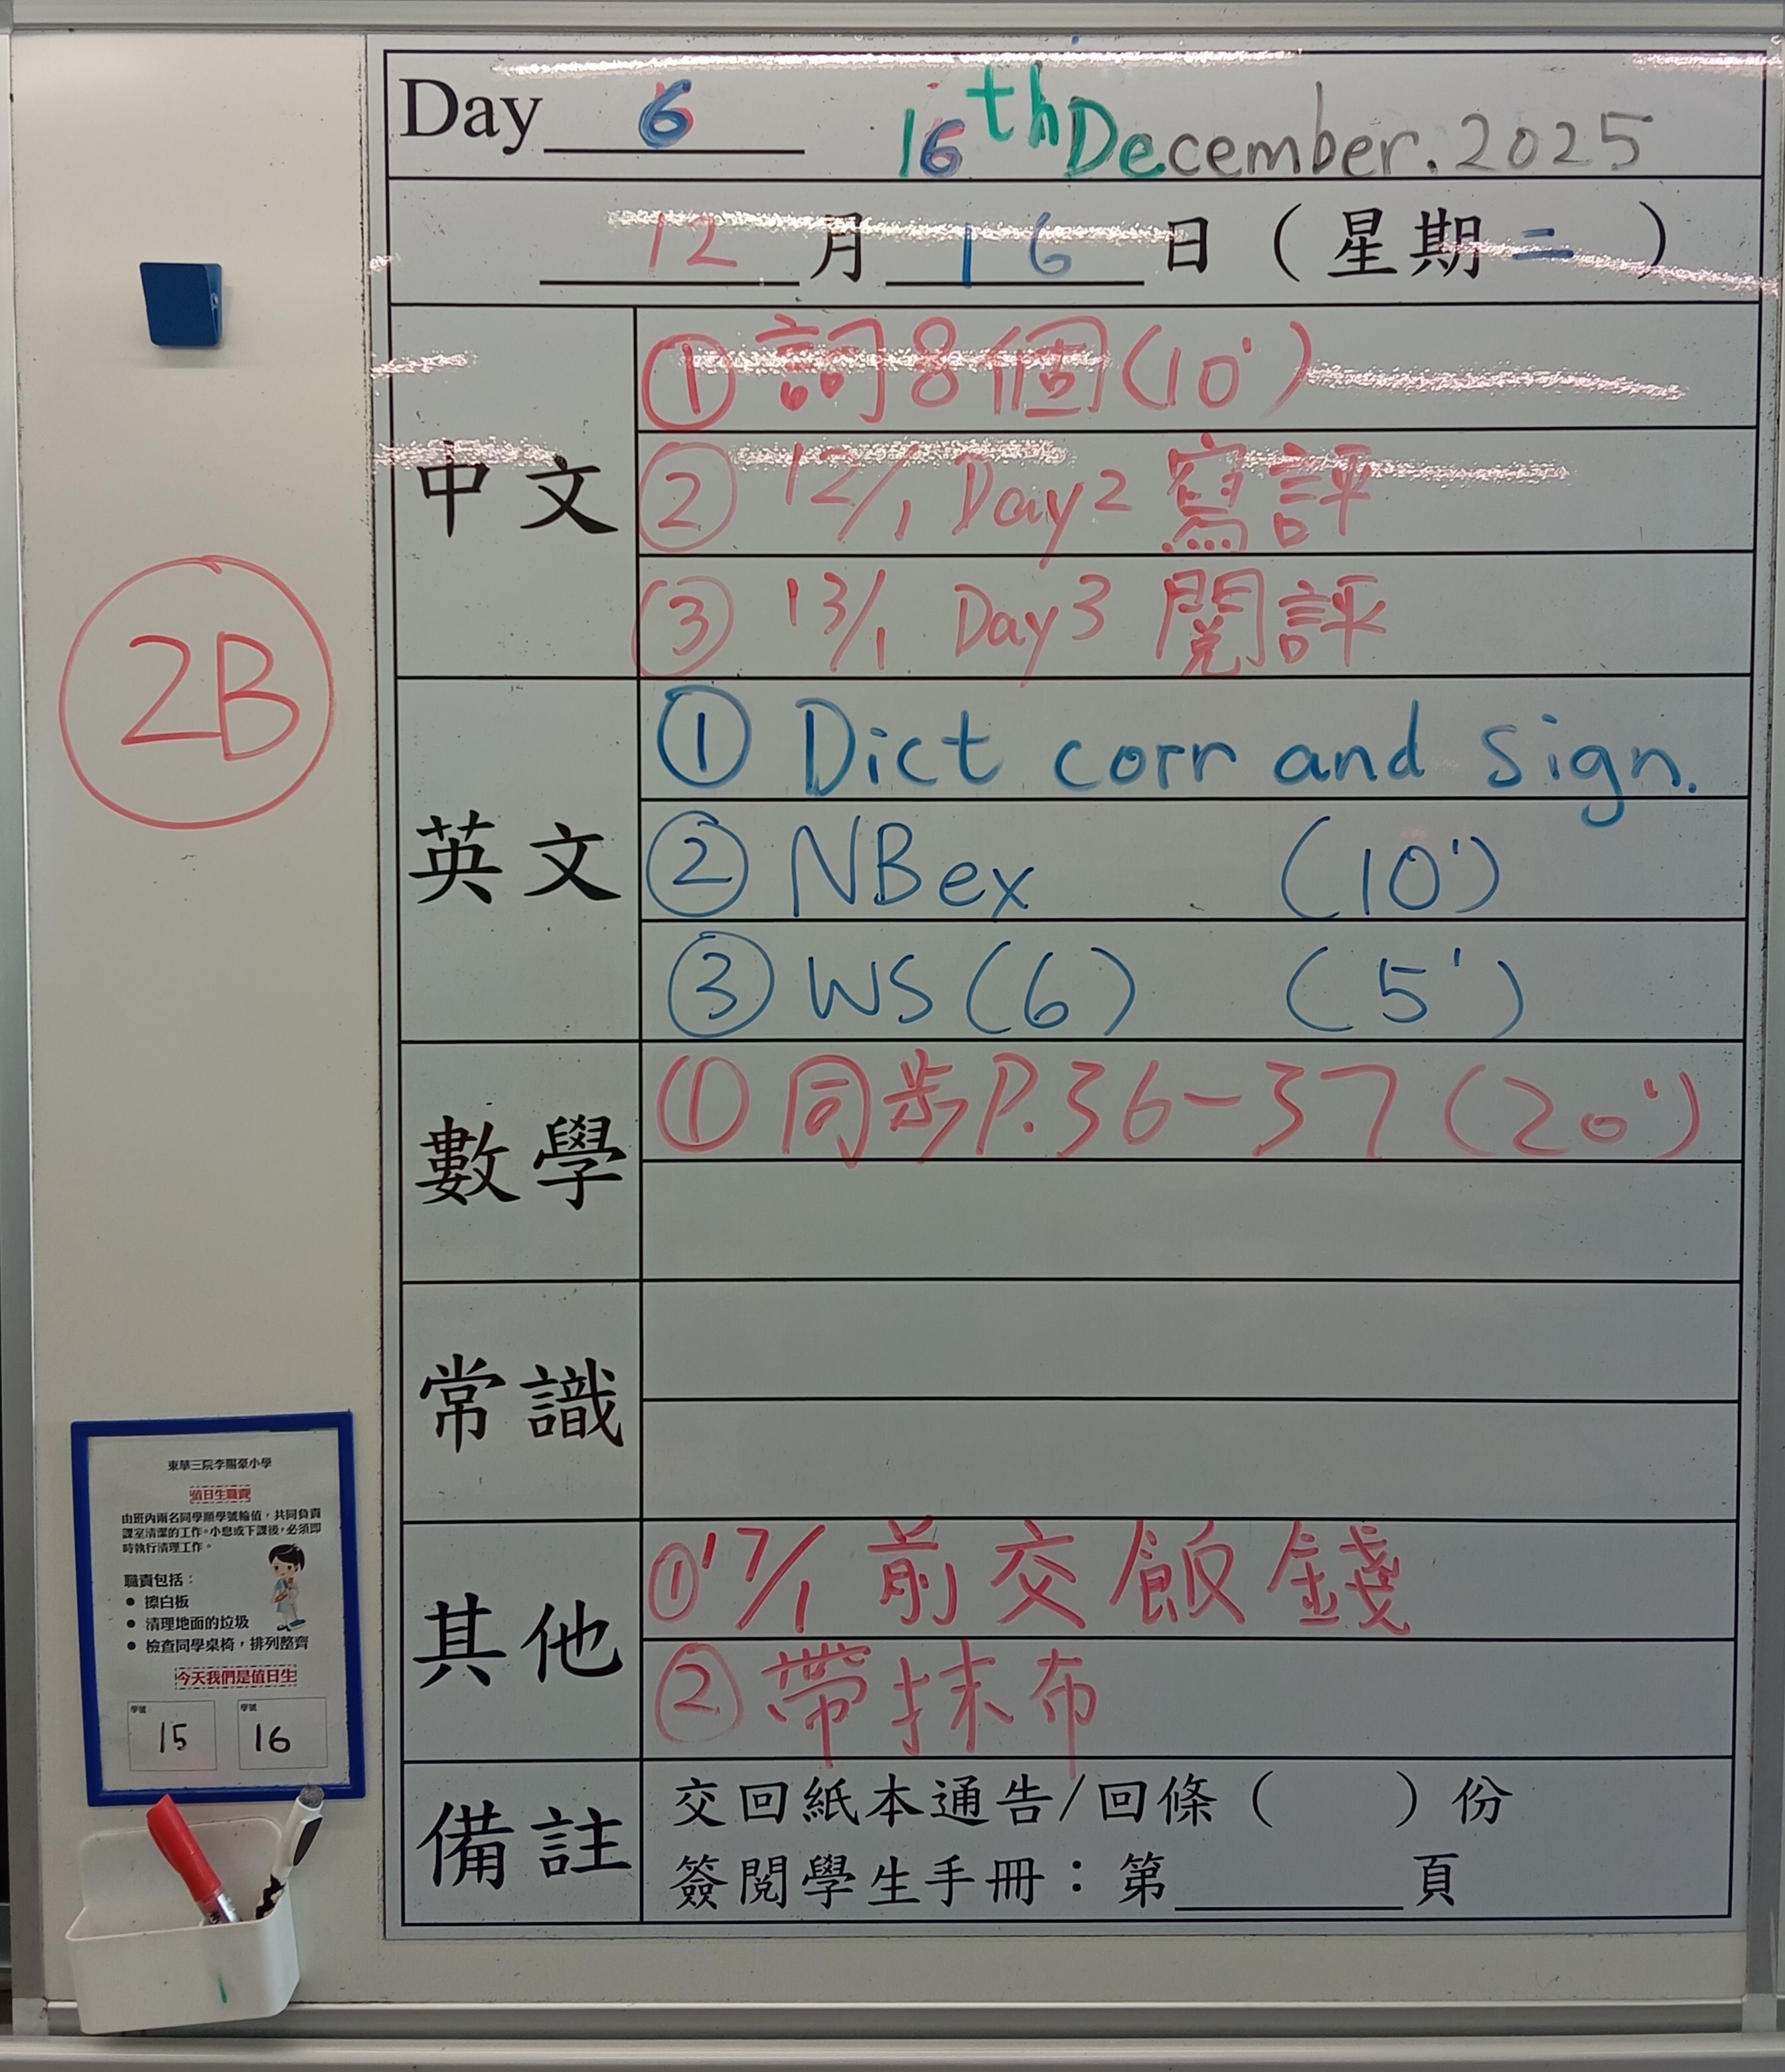 Day 6 16th December. 2025
12 月 16 日 ( 星期二 )
2B
中文
① 詞8個(10')
② 12/1 Day2 寫評
③ 13/1 Day3 閱評
英文
① Dict corr and sign.
② NBex (10')
③ WS(6) (5')
數學
① 同步P.36-37(20')
常識
其他
① 17/1 前交飯錢
② 帶抹布
備註
交回紙本通告/回條( )份
簽閱學生手冊：第 頁
東華三院李賜豪小學
值日生職責
由班內兩名同學順學號輪值，共同負責
課室清潔的工作。小息或下課後，必須即
時執行清理工作。
職責包括：
● 擦白板
● 清理地面的垃圾
● 檢查同學桌椅，排列整齊
今天我們是值日生
學號 學號
15 16